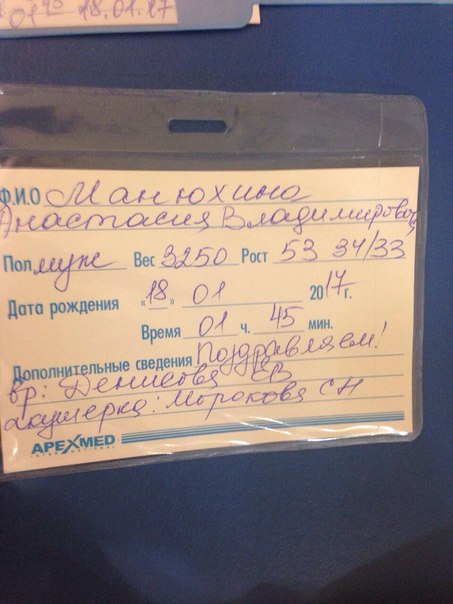 01 45 18.01.17
Ф.И.О Манюхина
Анастасия Владимировна
Пол муж Вес 3250 Рост 53 34/33
Дата рождения "18" 01 2017 г.
Время 01 ч. 45 мин.
Дополнительные сведения Поздравляем!
вр: Денисова ЕВ
Акушерка: Моракова СН
APEXMED
INTERNATIONAL